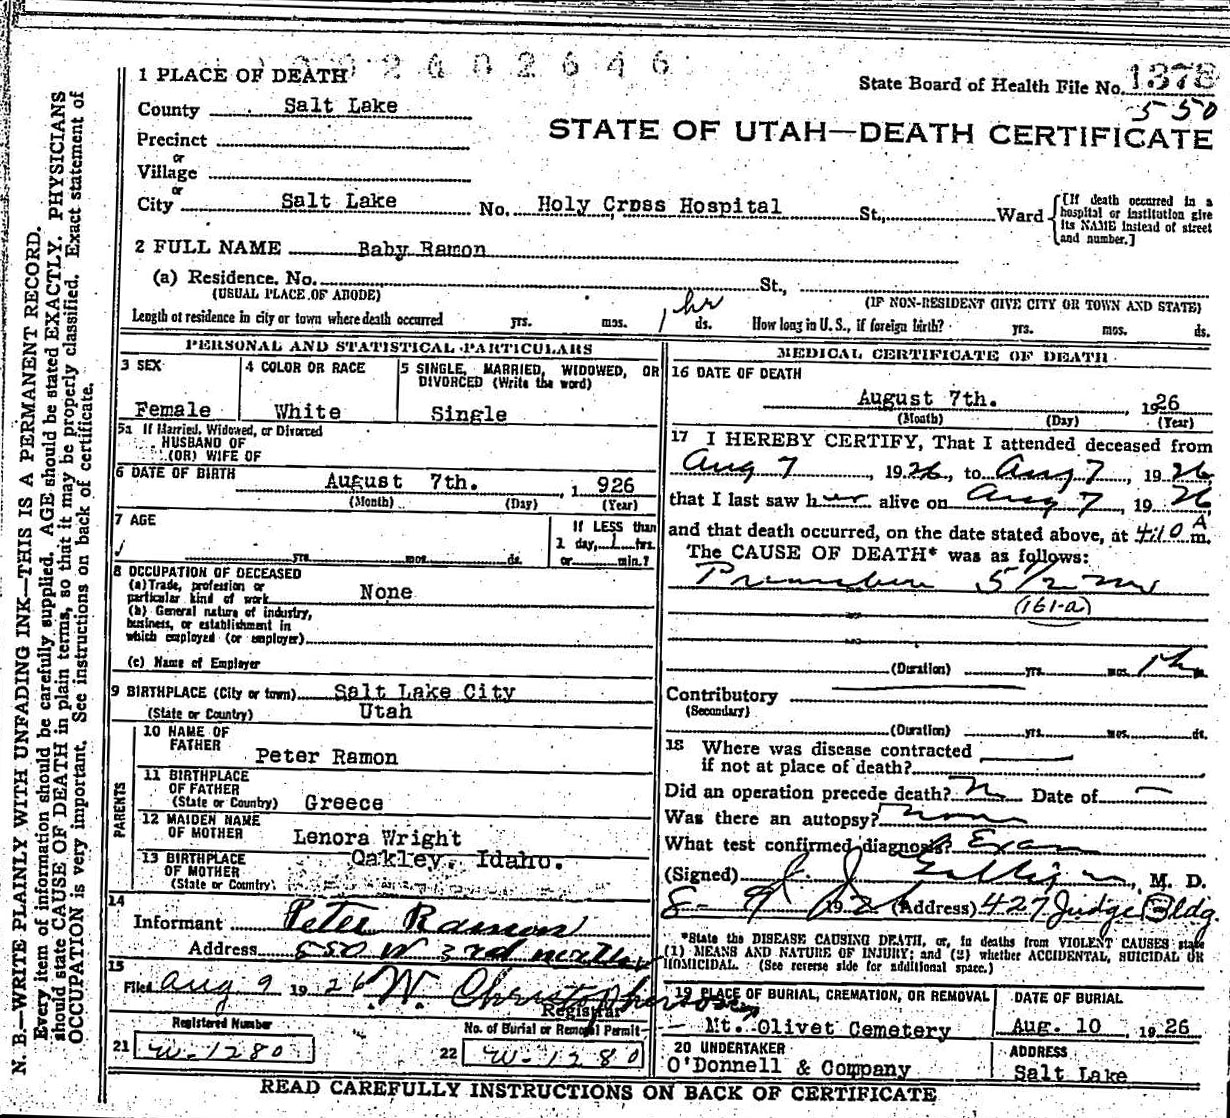 1 PLACE OF DEATH
State Board of Health File No. 1378
550
County Salt Lake
STATE OF UTAH—DEATH CERTIFICATE
Precinct
or
Village
or
City Salt Lake No. Holy Cross Hospital St., Ward [If death occurred in a hospital or institution give its NAME instead of street and number.]
2 FULL NAME Baby Ramon
(a) Residence. No. St.,
(USUAL PLACE OF ABODE) (IF NON-RESIDENT GIVE CITY OR TOWN AND STATE)
Length of residence in city or town where death occurred yrs. mos. 1 hr ds. How long in U. S., if foreign birth? yrs. mos. ds.
PERSONAL AND STATISTICAL PARTICULARS
3 SEX
Female
4 COLOR OR RACE
White
5 SINGLE, MARRIED, WIDOWED, OR
DIVORCED (Write the word)
Single
5a If Married, Widowed, or Divorced
HUSBAND OF
(OR) WIFE OF
6 DATE OF BIRTH August 7th. , 1 926
(Month) (Day) (Year)
7 AGE
If LESS than
1 day, 1 hrs.
yrs. mos. ds. or min.?
8 OCCUPATION OF DECEASED
(a) Trade, profession or
particular kind of work None
(b) General nature of industry,
business, or establishment in
which employed (or employer)
(c) Name of Employer
9 BIRTHPLACE (City or town) Salt Lake City
(State or Country) Utah
PARENTS
10 NAME OF
FATHER
Peter Ramon
11 BIRTHPLACE
OF FATHER
(State or Country) Greece
12 MAIDEN NAME
OF MOTHER Lenora Wright
13 BIRTHPLACE Oakley, Idaho.
OF MOTHER
(State or Country)
14
Informant Peter Ramon
Address 550 W 3rd
15
Filed Aug. 9 1926 W. Christopherson
Registrar
Registered Number No. of Burial or Removal Permit
21 W-1280 22 W-1280
MEDICAL CERTIFICATE OF DEATH
16 DATE OF DEATH
August 7th. , 1926
(Month) (Day) (Year)
17 I HEREBY CERTIFY, That I attended deceased from
Aug 7 , 1926, to Aug 7 , 1926,
that I last saw her alive on Aug 7 , 1926,
and that death occurred, on the date stated above, at 410 A m.
The CAUSE OF DEATH* was as follows:
Premature 5 1/2 mos
(161-a)
(Duration) yrs. mos. 1 hr
Contributory
(Secondary)
(Duration) yrs. mos. ds.
18 Where was disease contracted
if not at place of death?
Did an operation precede death? No Date of —
Was there an autopsy? None
What test confirmed diagnosis? Exam
(Signed) Galligan, M. D.
8-9 1926 (Address) 427 Judge Bldg.
*State the DISEASE CAUSING DEATH, or, in deaths from VIOLENT CAUSES state
(1) MEANS AND NATURE OF INJURY; and (2) whether ACCIDENTAL, SUICIDAL OR
HOMICIDAL. (See reverse side for additional space.)
19 PLACE OF BURIAL, CREMATION, OR REMOVAL
Mt. Olivet Cemetery
DATE OF BURIAL
Aug. 10 , 1926
20 UNDERTAKER
O'Donnell & Company
ADDRESS
Salt Lake
READ CAREFULLY INSTRUCTIONS ON BACK OF CERTIFICATE
N. B.—WRITE PLAINLY WITH UNFADING INK—THIS IS A PERMANENT RECORD.
Every item of information should be carefully supplied. AGE should be stated EXACTLY. PHYSICIANS
should state CAUSE OF DEATH in plain terms, so that it may be properly classified. Exact statement of
OCCUPATION is very important. See instructions on back of certificate.